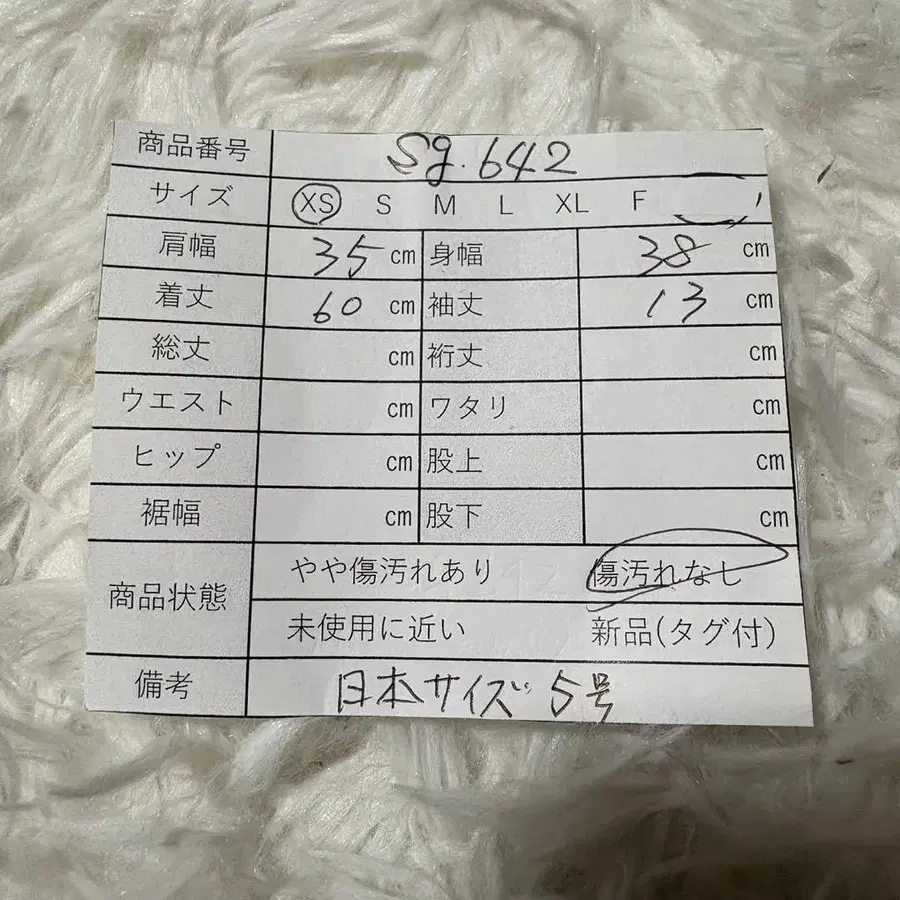 商品番号 Sg.642
サイズ XS S M L XL F
肩幅 35 cm 身幅 38 cm
着丈 60 cm 袖丈 13 cm
総丈 cm 裄丈 cm
ウエスト cm ワタリ cm
ヒップ cm 股上 cm
裾幅 cm 股下 cm
商品状態 やや傷汚れあり 傷汚れなし
未使用に近い 新品(タグ付)
備考 日本サイズ 5号